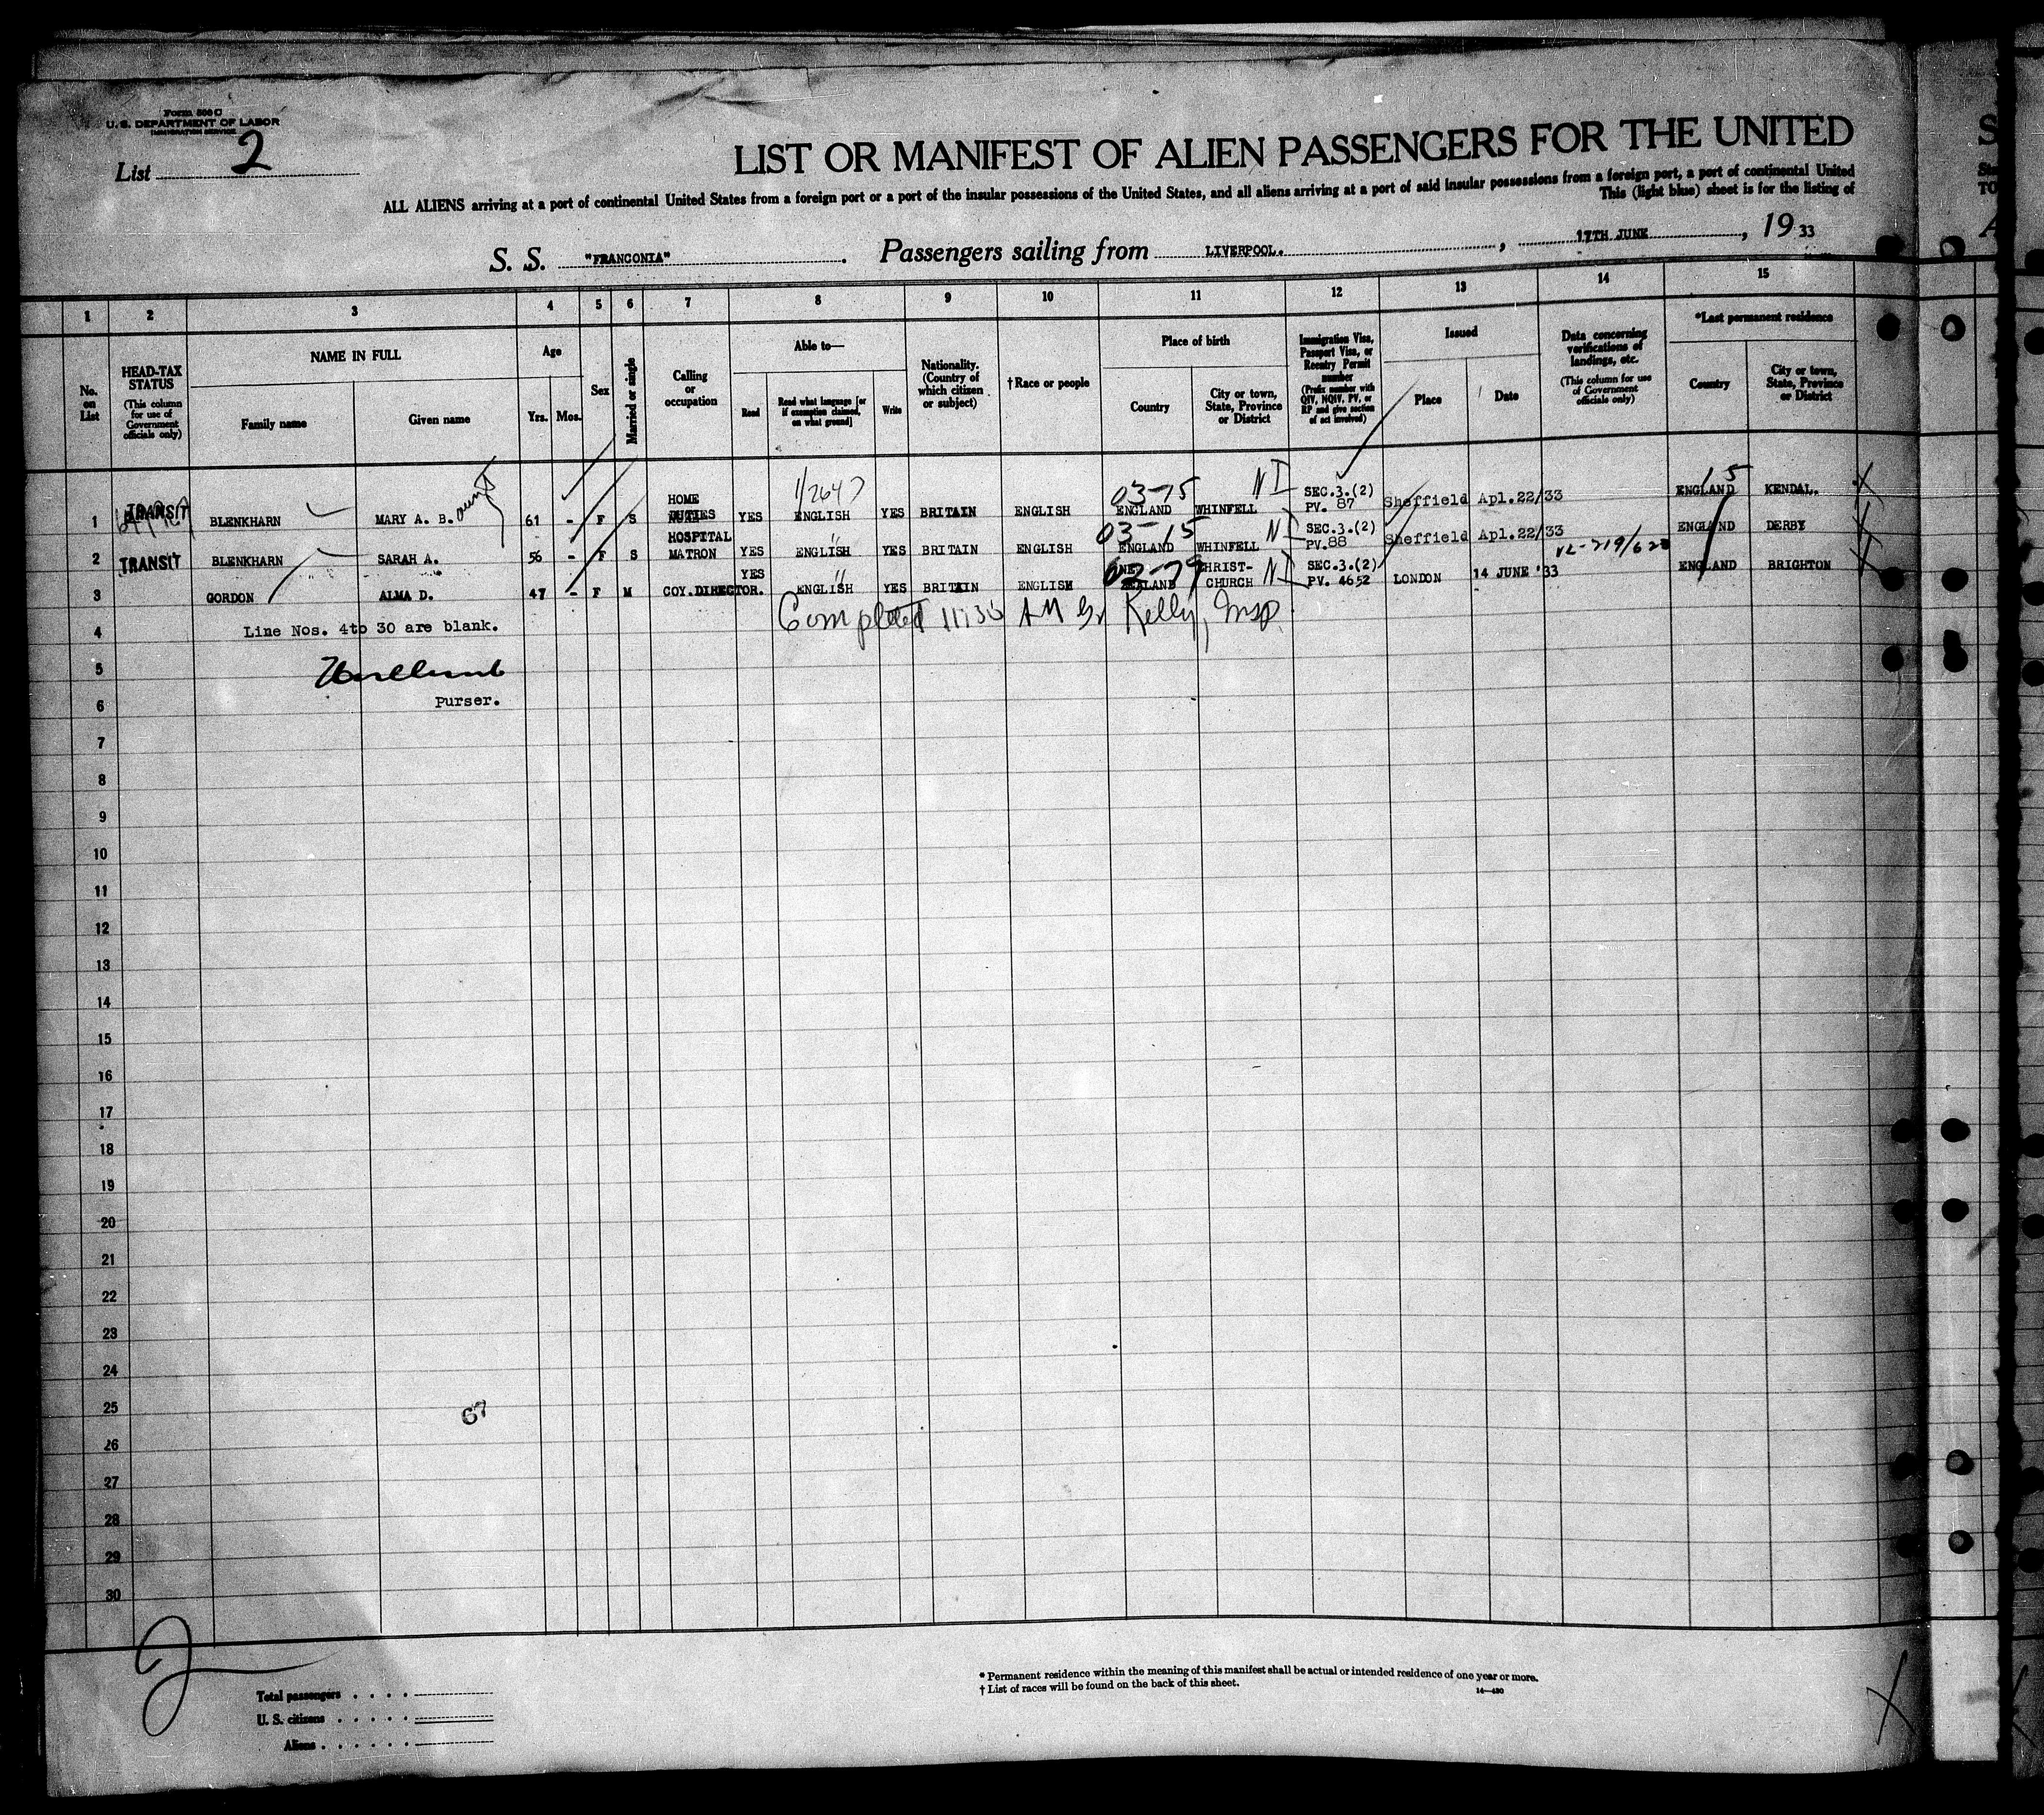 Form 500
U. S. DEPARTMENT OF LABOR
IMMIGRATION SERVICE
List 2
LIST OR MANIFEST OF ALIEN PASSENGERS FOR THE UNITED
ALL ALIENS arriving at a port of continental United States from a foreign port or a port of the insular possessions of the United States, and all aliens arriving at a port of said insular possessions from a foreign port, a port of continental United
This (light blue) sheet is for the listing of
S. S. "FRANCONIA". Passengers sailing from LIVERPOOL. , 17TH JUNE , 19 33
1 2 3 4 5 6 7 8 9 10 11 12 13 14 15
No. on List
HEAD-TAX STATUS (This column for use of Government officials only)
NAME IN FULL
Family name
Given name
Age
Yrs. Mos.
Sex
Married or single
Calling or occupation
Able to—
Read
Read what language [or if exemption claimed, on what ground]
Write
Nationality. (Country of which citizen or subject)
† Race or people
Place of birth
Country
City or town, State, Province or District
Immigration Visa, Passport Visa, or Reentry Permit number (Prefix number with QIV, NQIV, PV, or RP and give section of act involved)
Issued
Place
Date
Data concerning verifications of landings, etc. (This column for use of Government officials only)
*Last permanent residence
Country
City or town, State, Province or District
1 TRANSIT BLENKHARN MARY A. B. aunt 61 - F S HOME DUTIES YES ENGLISH YES BRITAIN ENGLISH 03-15 ENGLAND WHINFELL NI SEC.3.(2) PV. 87 Sheffield Apl.22/33 ENGLAND 15 KENDAL.
2 TRANSIT BLENKHARN SARAH A. 56 - F S HOSPITAL MATRON YES ENGLISH YES BRITAIN ENGLISH 03-15 ENGLAND WHINFELL NI SEC.3.(2) PV.88 Sheffield Apl.22/33 ENGLAND DERBY
3 GORDON ALMA D. 47 - F M COY.DIRECTOR. YES ENGLISH YES BRITAIN ENGLISH 02-79 ZEALAND CHRIST-CHURCH NI SEC.3.(2) PV. 4652 LONDON 14 JUNE '33 ENGLAND BRIGHTON
4 Line Nos. 4to 30 are blank. Completed 11:35 AM Kelly, Insp.
5
6 Purser.
7
8
9
10
11
12
13
14
15
16
17
18
19
20
21
22
23
24
25 67
26
27
28
29
30
2
* Permanent residence within the meaning of this manifest shall be actual or intended residence of one year or more.
† List of races will be found on the back of this sheet.
14—430
Total passengers . . . .
U. S. citizens . . . . .
Aliens . . . . . .